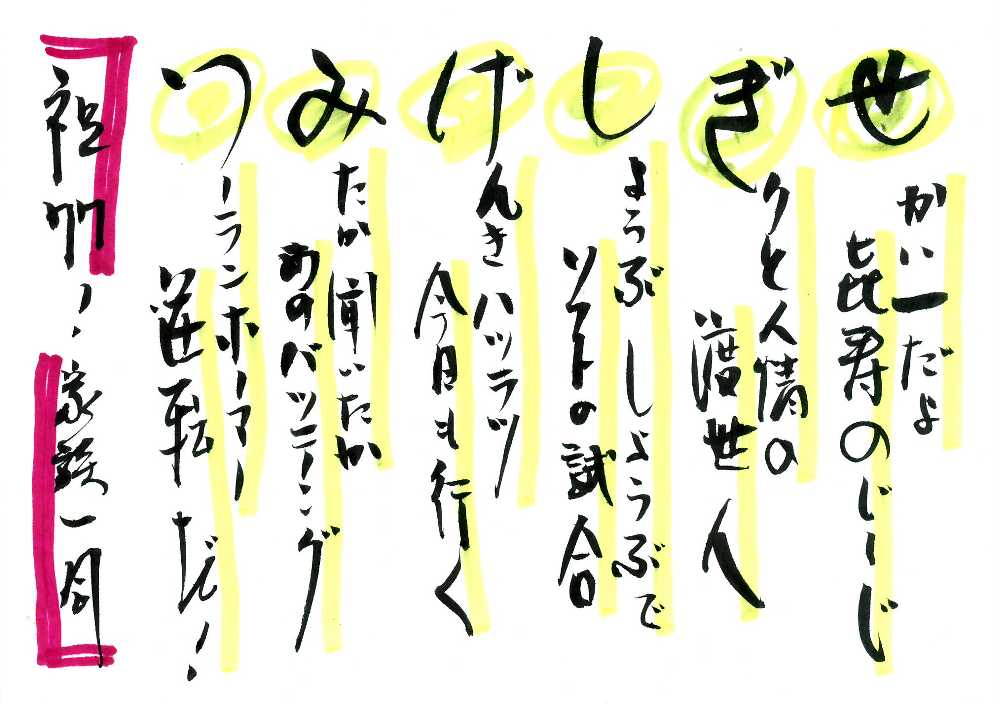 せかい一だよ
㐂寿のじーじ
ぎりと人情の
渡世人
しょうぶしょうぶで
ソフトの試合
げんきハツラツ
今日も行く
みたか聞いたか
あのバッティング
つーランホーマー
逆転だ!
祝77!家族一同